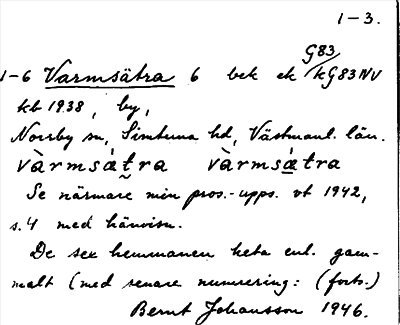 1-3.
G83
1-6 Varmsätra 6 bek ek / kG83NV
kb 1938, by,
Norrby sn, Simtuna hd, Västmanl. län.
vàrmsátra vàrmsátra
Se närmare min pros.-upps. vt 1942,
s. 4 med hänvisn.
De sex hemmanen heta enl. gam-
malt (med senare numrering: (forts.)
Bernt Johansson 1946.